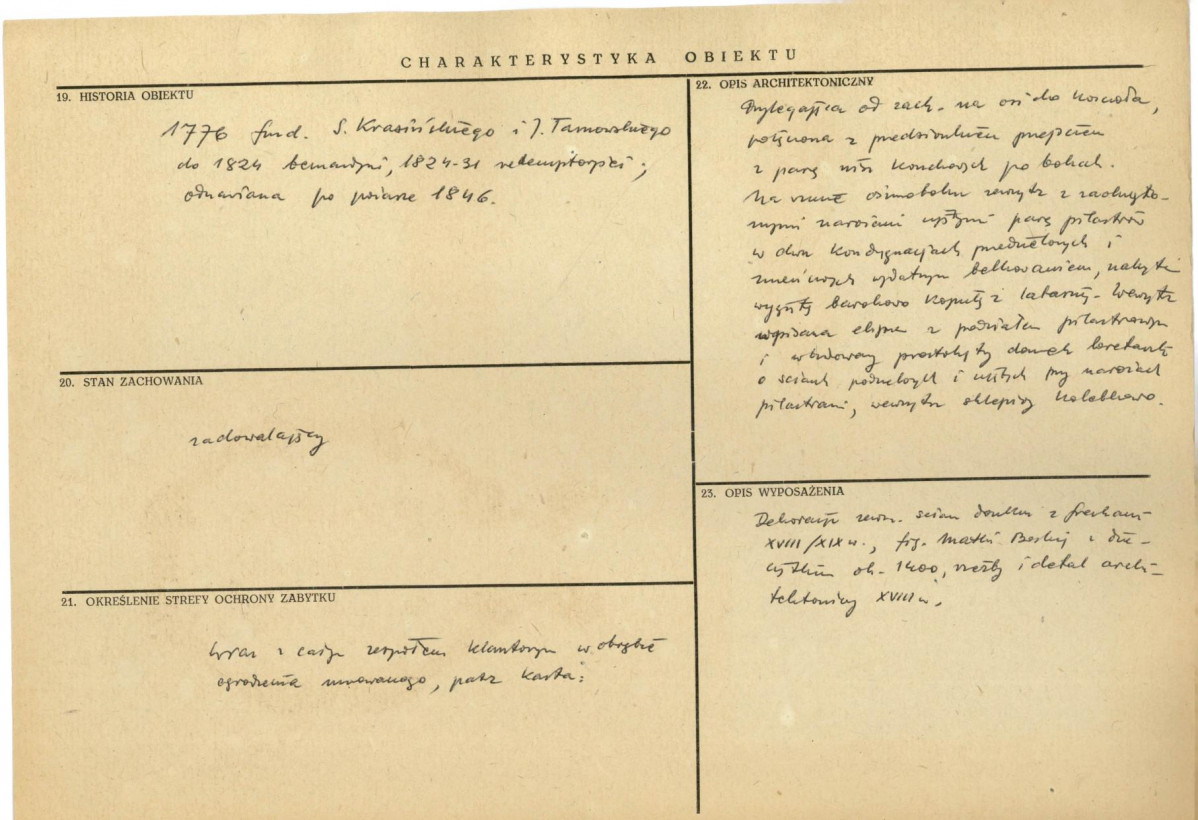 CHARAKTERYSTYKA OBIEKTU
19. HISTORIA OBIEKTU
1776 fund. S. Krasińskiego i J. Tarnowskiego
do 1824 bernardyni, 1824-31 redemptoryści;
odnawiana po pożarze 1846.
20. STAN ZACHOWANIA
zadowalający
21. OKREŚLENIE STREFY OCHRONY ZABYTKU
wraz z całym zespołem klasztornym w obrębie
ogrodzenia murowanego, patrz karta:
22. OPIS ARCHITEKTONICZNY
Przylegająca od zach. na osi do kościoła,
połączona z przedsionkiem przejściem
z parą nisz konchowych po bokach.
Na rzucie ośmioboku zewnątrz z zaokrąglo-
nymi narożami ujętymi parą pilastrów
w dwu kondygnacjach przedzielonych i
zwieńczonych wydatnym belkowaniem, nakryta
wygiętą barokowo kopułą z latarnią. Wewnątrz
wpisana elipsa z podziałem pilastrowym
i wbudowany prostokątny domek loretański
o ścianach podzielonych i ujętych przy narożach
pilastrami, wewnątrz sklepiony kolebkowo.
23. OPIS WYPOSAŻENIA
Dekoracja zewn. ścian domku z freskami
XVIII/XIX w., fig. Matki Boskiej z Dzie-
ciątkiem ok. 1400, rzeźby i detal archi-
tektoniczny XVIII w.